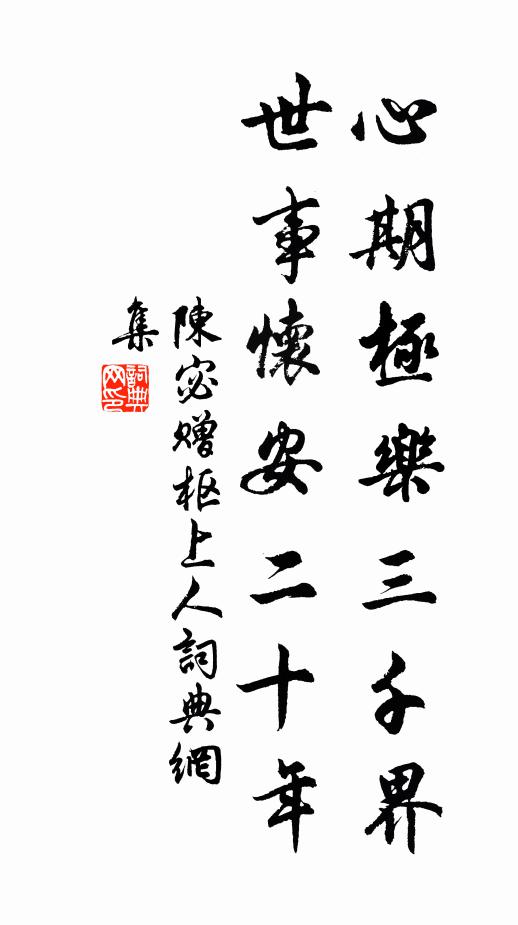 心期極樂三千界
世事懷安二十年
陳宓贈枢上人詞典網
集
詞典
网印